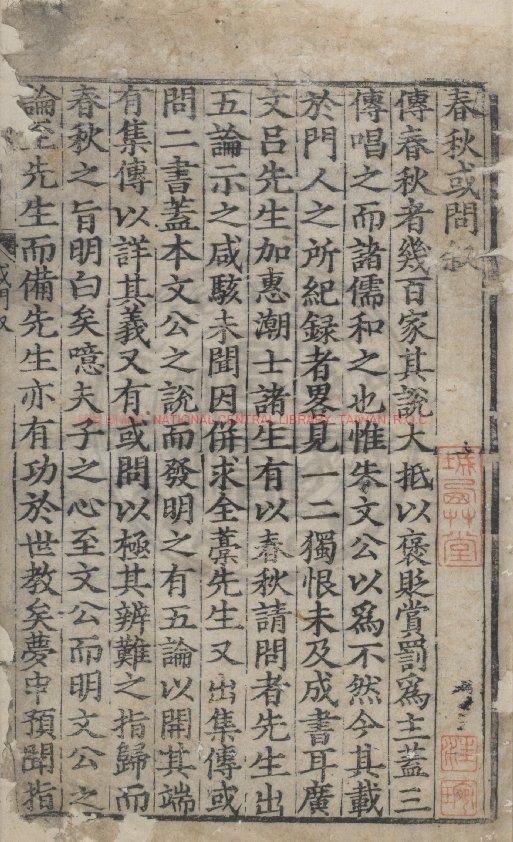 春秋或問叙
傳春秋者幾百家其說大抵以褒貶賞罰爲主蓋三
傳唱之而諸儒和之也惟朱文公以爲不然今其載
於門人之所紀録者畧見一二獨恨未及成書耳廣
文吕先生加惠潮士諸生有以春秋請問者先生出
五論示之咸駭未聞因併求全藁先生又出集傳或
問二書蓋本文公之說而發明之有五論以開其端
有集傳以詳其義又有或問以極其辨難之指歸而
春秋之旨明白矣噫夫子之心至文公而明文公之
論至先生而備先生亦有功於世教矣夢申預聞指
NATIONAL CENTRAL LIBRARY, TAIWAN, R.O.C.